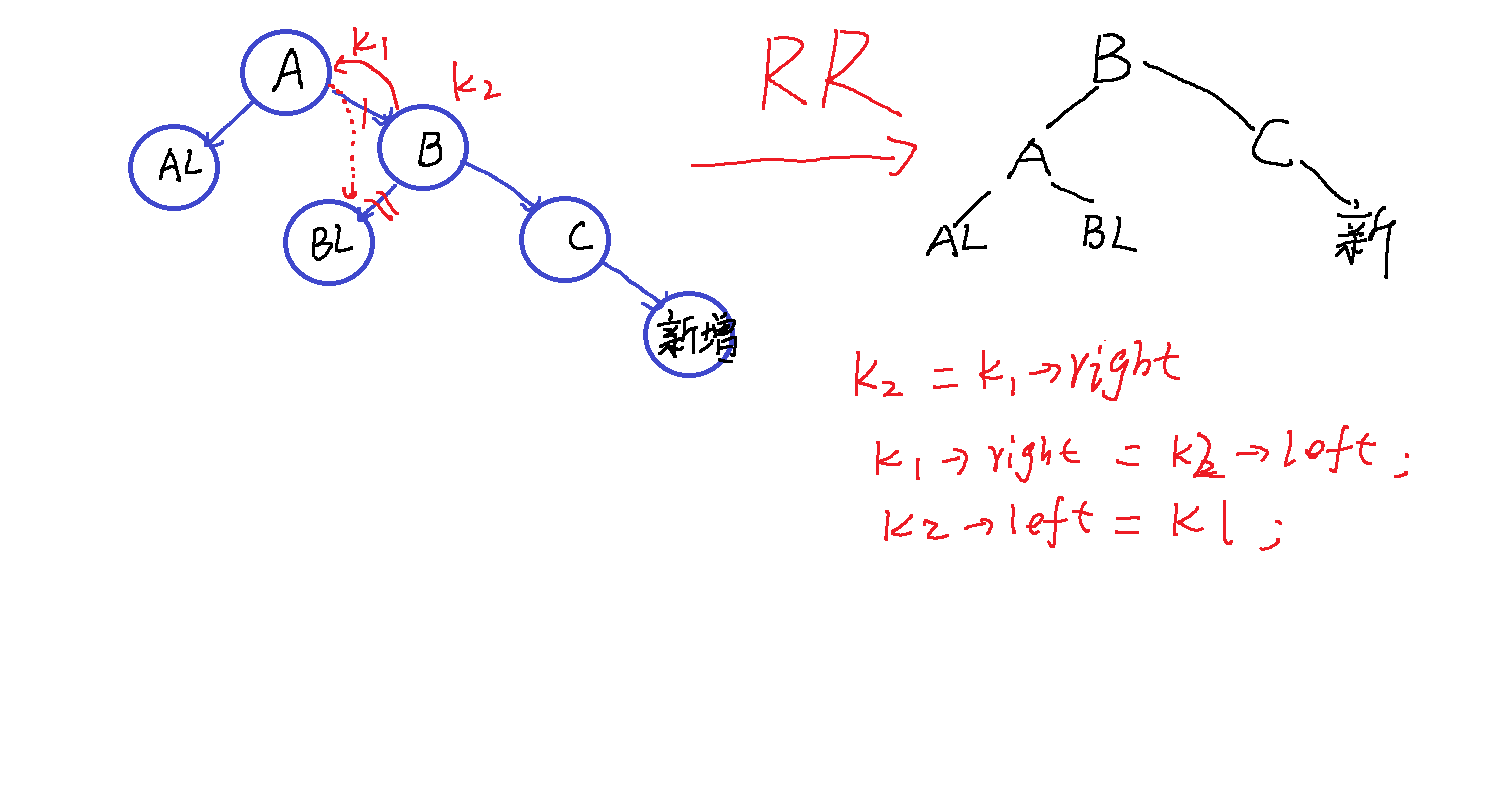 A
k1
k2
AL
B
BL
C
新增
RR
B
A
C
AL
BL
新
k2 = k1→right
k1→right = k2→left;
k2→left = k1;